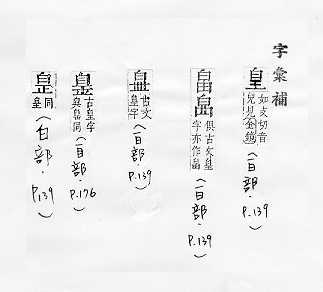 字彙補
皇 如支切音兄見金鏡（白部．P.139）
俱古文皇字亦作（白部．P.139）
古文皇字（白部．P.139）
古皇字與同（部．P.176）
同皇（白部．P.139）